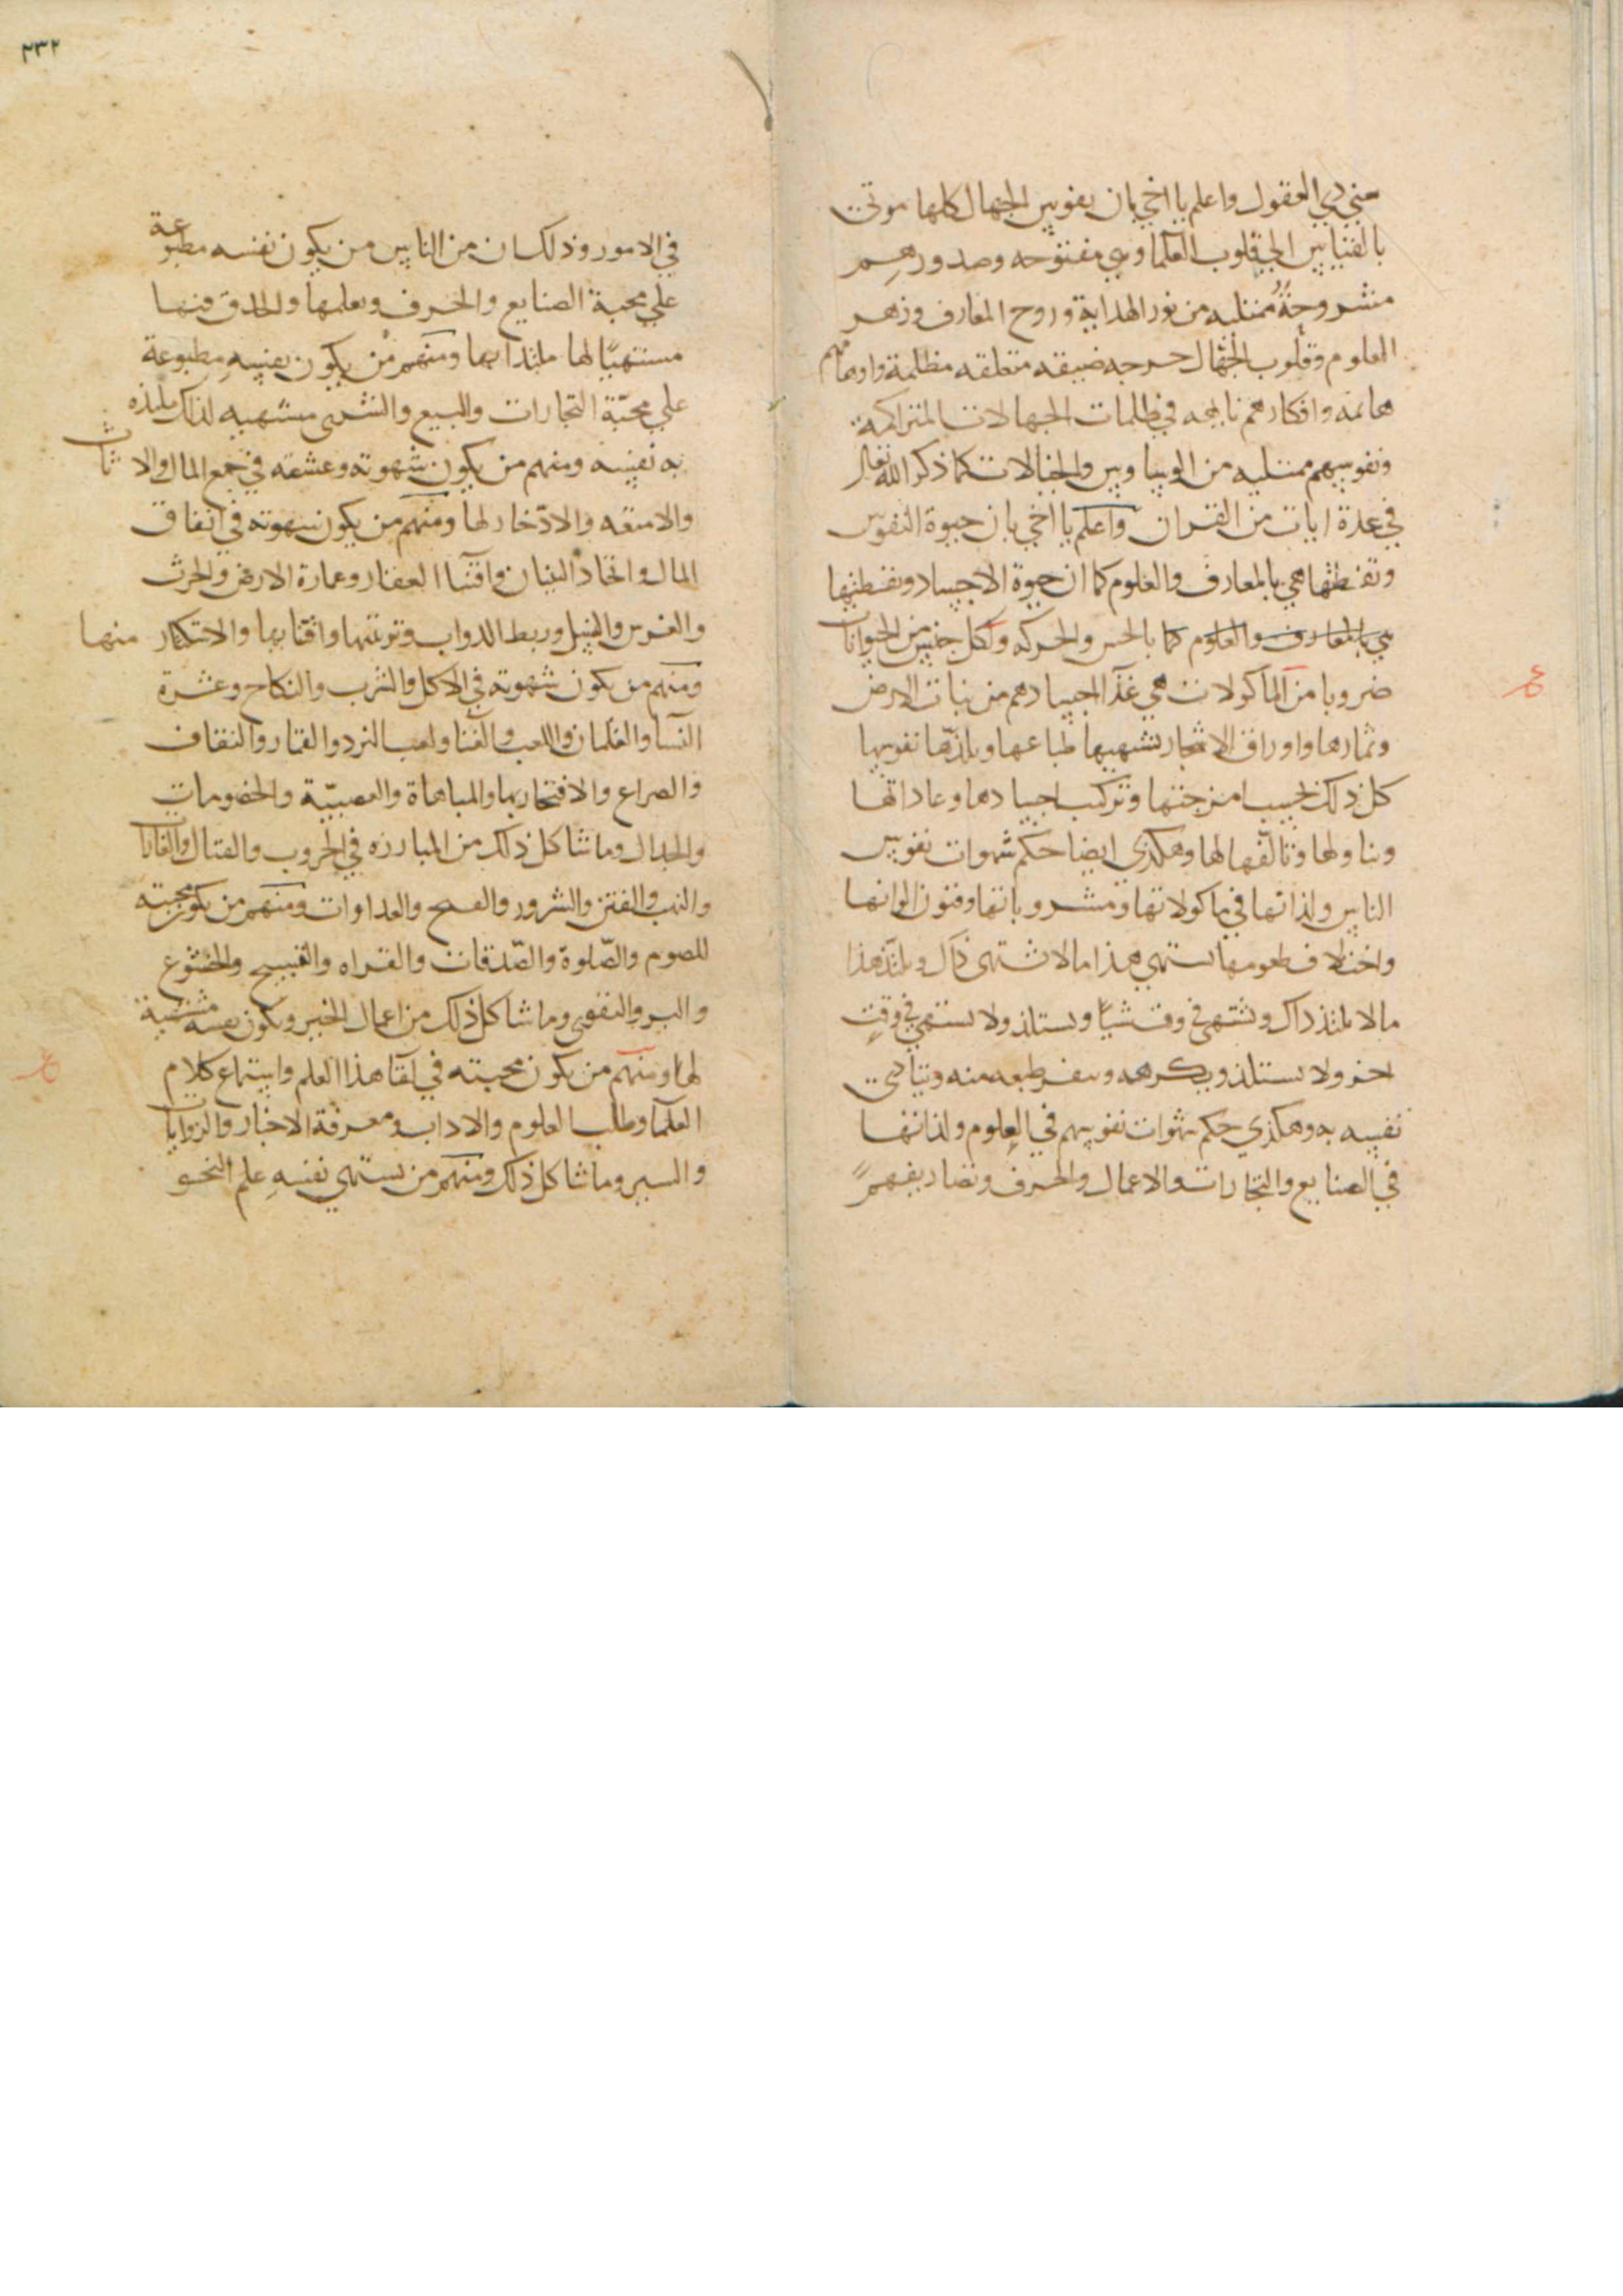 ذوي العقول واعلم يا اخي بان نفوس الجهال كلها موتى
بالقياس الي قلوب العلما وهي مفتوحه وصدورهم
مشروحةٌ ممتليه من نور الهداية وروح المعارف وزهر
العلوم وقلوب الجهال حرجه ضيقه متعلقه مظلمة واوهامهم
هائمه وافكارهم تايهه في ظلمات الجهالات المتراكمة
ونفوسهم ممتليه من الوساوس والخيالات كما ذكر الله تعالى
في عدة ايات من القران واعلم يا اخي بان حيوة النفوس
وتفطنها هي بالمعارف والعلوم كما ان حيوة الاجساد وتفطنها
هي بالمعارف والعلوم كما بالحس والحركه ولكل جنس من الحيوانات
ضروبا من المأكولات هي غذآ اجسادهم من نبات الارض
وثمارها واوراق الاشجار تشتهيها طباعها ويلذها نفوسها
كل ذلك بحسب امزجتها وتركيب اجسادها وعاداتها
وتناولها وتالفها لها وهكذى ايضا حكم شهوات نفوس
الناس ولذاتها في مأكولاتها ومشروباتها وفنون الوانها
واختلاف طعومها يستهي هذا ما لا تشتهى ذاك ويلتذ هذا
ما لا يلتذ ذاك وتشتهى في وقت شياً ويستلذ ولا يستهي في وقتٍ
اخر ولا يستلذ ويكرهه وينفر طبعه منه ويتاذى
نفسه به وهكذي حكم شهوات نفوسهم في العلوم ولذاتها
في الصنايع والتجارات والاعمال والحرف وتصاريفهم
٢٣٢
في الامور وذلك ان من الناس من يكون نفسه مطبوعة
علي محبة الصنايع والحرف وتعلمها والحذق فيها
مستهيًا لها ملتذا بها ومنهم من يكون نفسه مطبوعة
علي محبّة التجارات والبيع والشرى مشتهيه لذلك ملتذه
به نفسه ومنهم من يكون شهوته وعشقه في جمع المال والاثاث
والامتعه والادّخار لها ومنهم من يكون شهوته في انفاق
المال واتخاذ البنيان واقتنا العقار وعمارة الارض والحرث
والغرس والنسل وربط الدواب وتربيتها واقتنايها والاحتكار منها
ومنهم من يكون شهوته في الاكل والشرب والنكاح وعشرة
النسآ والغلمان واللعب والغنا ولعب النرد والقمار والنقاف
والصراع والافتخار بها والمباهاة والعصبيّة والخصومات
والجدال وما شاكل ذلك من المبارزه في الحروب والقتال والغارات
والنهب والفتن والشرور والعداوات ومنهم من يكون محبته
للصوم والصّلوة والصّدقات والقراه والتسبيح والخشوع
والبر والتقوى وما شاكل ذلك من اعمال الخير ويكون نفسه مشتهية
لها ومنهم من يكون محبته في لقآ هذا العلم واستماع كلام
العلمآ وطلب العلوم والاداب ومعرفة الاخبار والروايات
والسير وما شاكل ذلك ومنهم من يستهي نفسهِ علم النحو